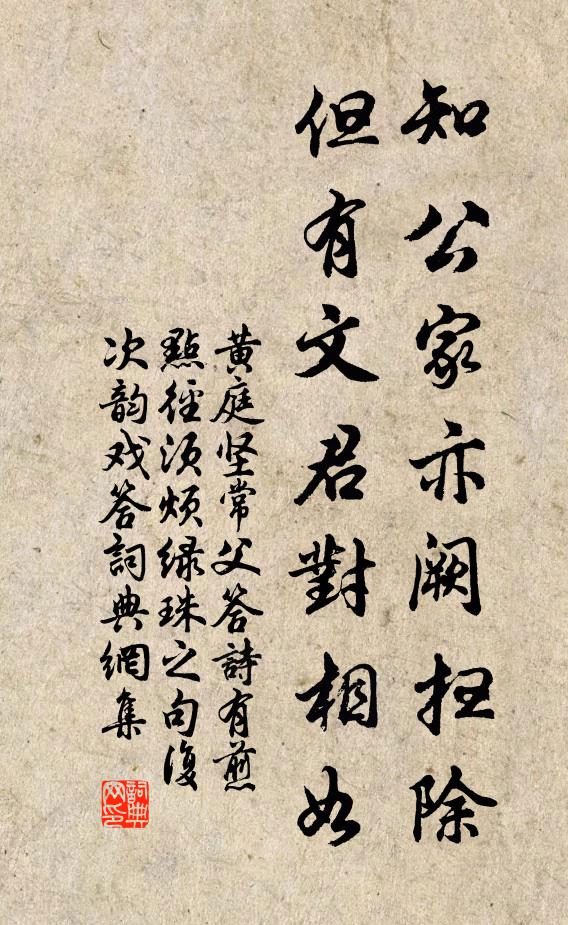 知公家亦阙扫除
但有文君對相如
黄庭坚常父答詩有煎
點徑須煩绿珠之句復
次韵戏答詞典網集
詞典网印